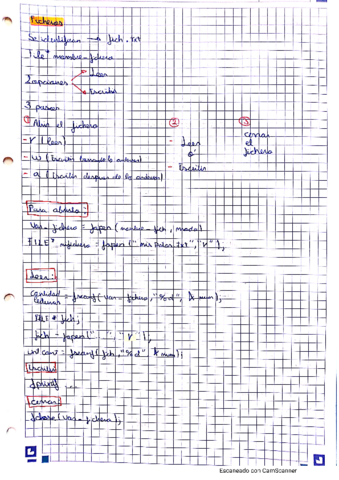 Ficheros
Se identifican → fich.txt
File* nombre_fichero
2 opciones
Leer
Escribir
3 pasos
① Abrir el fichero
- r (leer)
- w (Escribir borrando lo anterior)
- a (Escribir despues de lo anterior)
②
- Leer
ó
- Escribir
③
cerrar
el
fichero
Para abrirlo:
Var_fichero = fopen (nombre_fich, modo)
FILE* mifichero = fopen ("misDatos.txt", "r");
Leer:
cantidad = fscanf (var_fichero, "%d", &num);
FILE* fich;
fich = fopen (" ", "r");
int cant = fscanf (fich, "%d" &num);
Escribir
fprintf ...
Cerrar:
fclose (var_fichero);
Escaneado con CamScanner